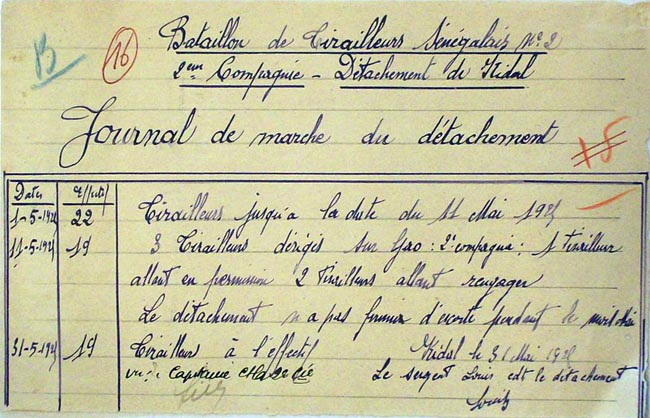 B 16 Bataillon de Tirailleurs Sénégalais N°2
2ème Compagnie - Détachement de Kidal
Journal de marche du détachement
15
Dates Effectif
1-5-192 22 Tirailleurs jusqu'a la date du 11 Mai 192
11-5-192 19 3 Tirailleurs dirigés sur Gao : 2e compagnie : 1 tirailleur
allant en permission 2 Tirailleurs allant rengager
Le détachement n a pas fourni d'escorte pendant le mois de Mai
31-5-192 19 Tirailleurs à l'effectif Kidal le 31 Mai 192
vu : Capitaine Le sergent Louis cdt le détachement
Louis